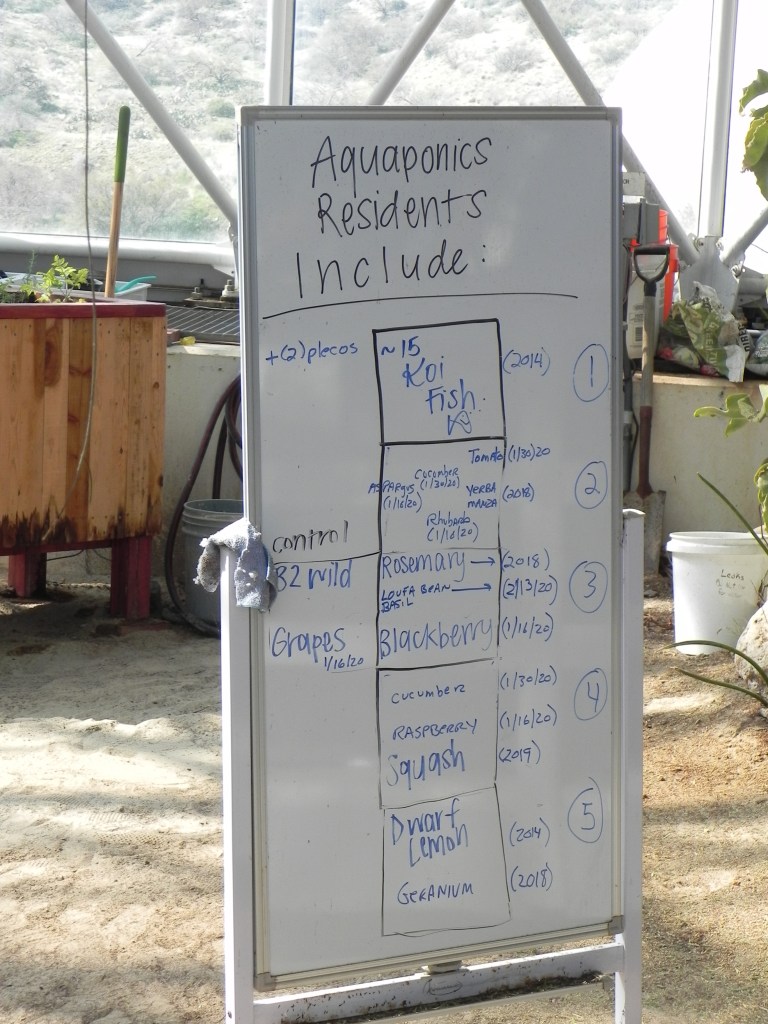 Aquaponics
Residents
Include:
+(2) plecos
~15
Koi
Fish
(2014)
1
Tomato (1/30)20
Cucumber
(1/30/20)
ASPARAGUS
(1/16/20)
YERBA
MANZA
(2018)
Rhubarb
(1/16/20)
2
control
B2 wild
Grapes
1/16/20
Rosemary → (2018)
LOUFA BEAN → (2/13/20)
BASIL
Blackberry (1/16/20)
3
CUCUMBER (1/30/20)
RASPBERRY (1/16/20)
Squash (2019)
4
Dwarf
Lemon (2014)
GERANIUM (2018)
5